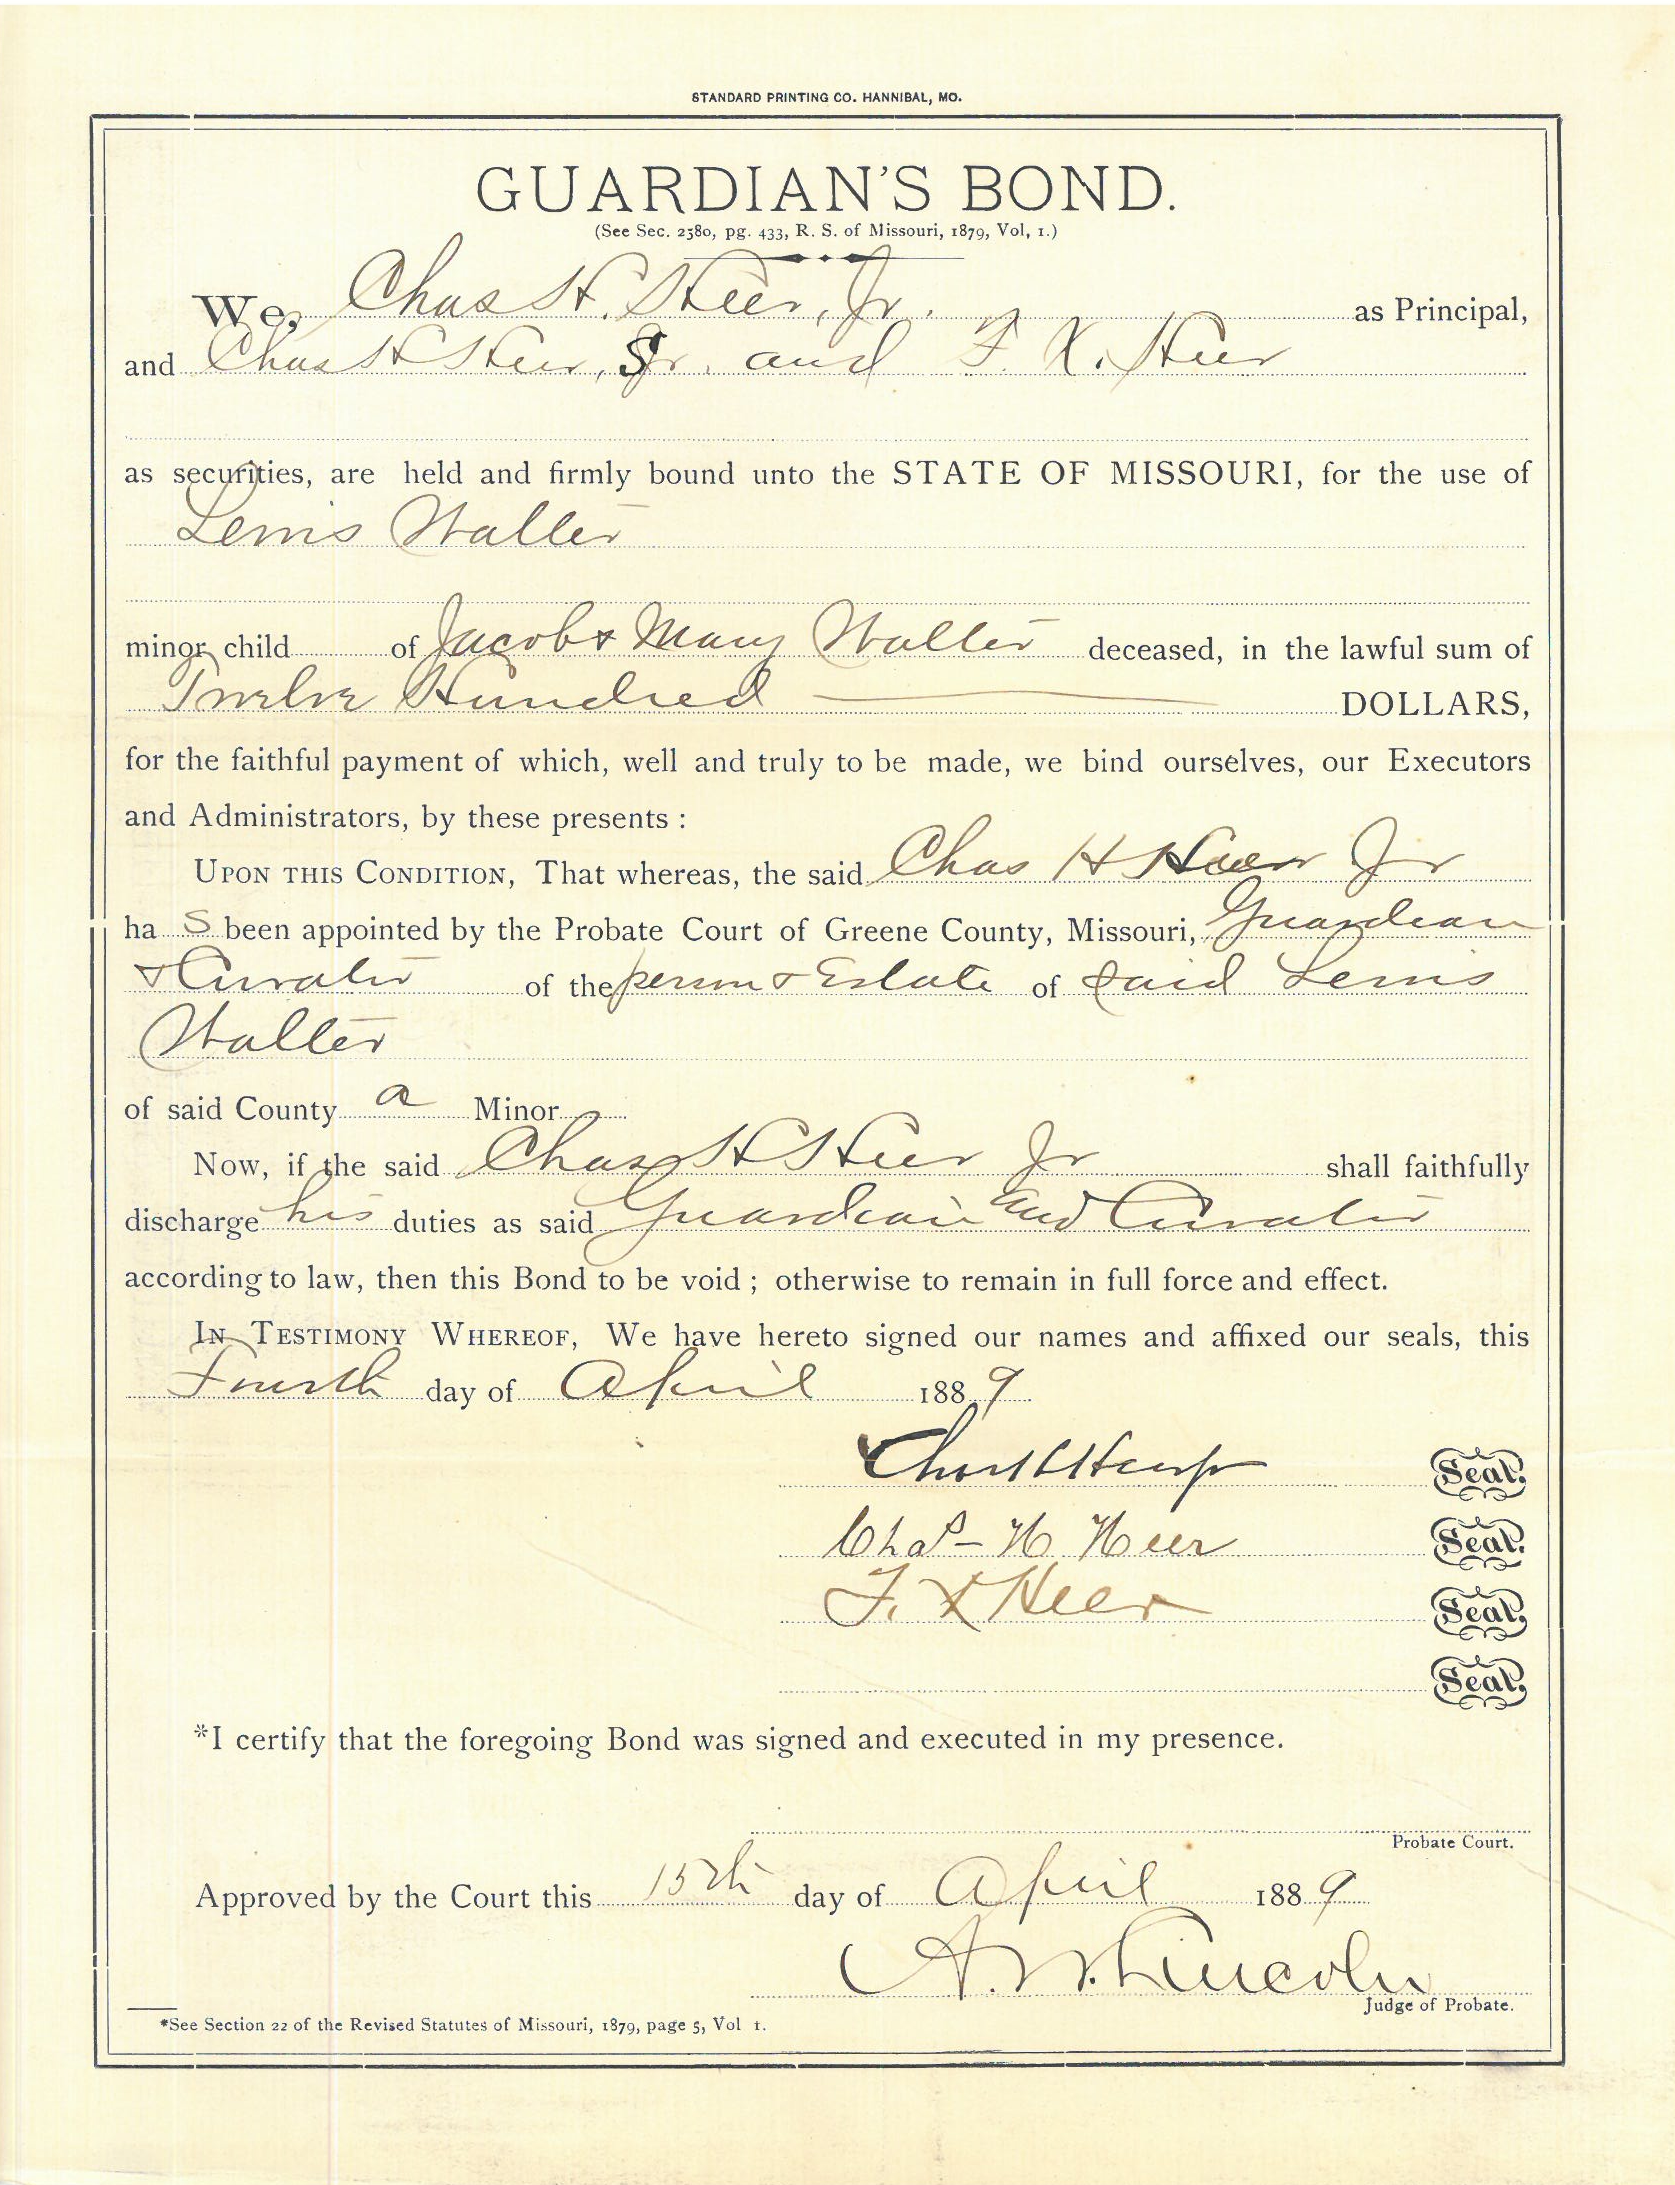 STANDARD PRINTING CO. HANNIBAL, MO.
GUARDIAN'S BOND.
(See Sec. 2580, pg. 433, R. S. of Missouri, 1879, Vol, 1.)
We, Chas H. Heer, Jr. as Principal,
and Chas H Heer, Sr. and F. X. Heer
as securities, are held and firmly bound unto the STATE OF MISSOURI, for the use of
Lewis Walter
minor child of Jacob & Mary Walter deceased, in the lawful sum of
Twelve Hundred DOLLARS,
for the faithful payment of which, well and truly to be made, we bind ourselves, our Executors
and Administrators, by these presents :
UPON THIS CONDITION, That whereas, the said Chas H Heer Jr
ha s been appointed by the Probate Court of Greene County, Missouri, Guardian
& Curator of the person & Estate of said Lewis
Walter
of said County a Minor
Now, if the said Chas H Heer Jr shall faithfully
discharge his duties as said Guardian and Curator
according to law, then this Bond to be void ; otherwise to remain in full force and effect.
IN TESTIMONY WHEREOF, We have hereto signed our names and affixed our seals, this
Fourth day of April 1889
Chas H Heer Jr Seal.
Chas - H Heer Seal.
F. X Heer Seal.
Seal.
*I certify that the foregoing Bond was signed and executed in my presence.
Probate Court.
Approved by the Court this 15th day of April 1889
A. W. Lincoln
Judge of Probate.
*See Section 22 of the Revised Statutes of Missouri, 1879, page 5, Vol 1.